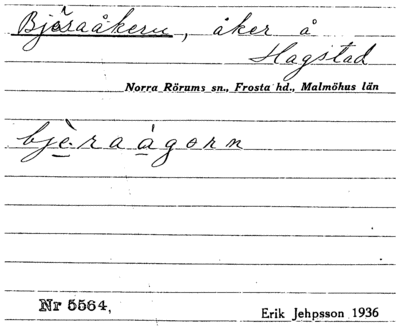 Björaåkern, åker å
Hagstad
Norra Rörums sn., Frosta hd., Malmöhus län
bjèraågorn
Nr 5564,
Erik Jehpsson 1936